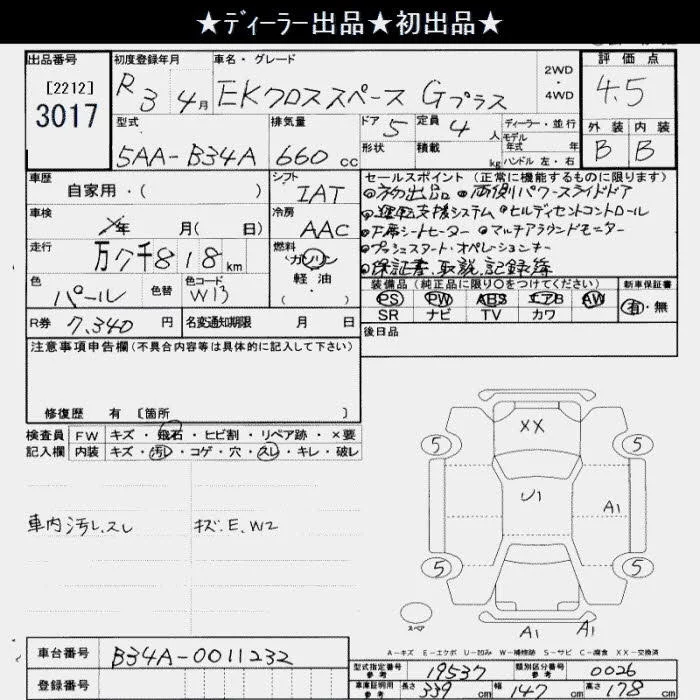 ★ディーラー出品★初出品★
出品番号
[2212]
3017
初度登録年月
R3 4月
車名・グレード
EKクロススペース Gプラス
2WD
・
4WD
評価点
4.5
外装 内装
B B
型式
5AA-B34A
排気量
660 cc
ドア 5
定員 4 人
形状
積載 kg
ディーラー・並行
モデル
年式 年
ハンドル 左・右
車歴
自家用・( )
シフト
IAT
車検
年 月( 日)
冷房
AAC
走行
万7千818km
燃料
ガソリン
・
軽油
( )
色
パール
色替
色コード
W13
R券 7,340 円
名変通知期限 月 日
セールスポイント(正常に機能するものに限ります)
◎初出品 ◎両側パワースライドドア
◎運転支援システム ◎ヒルディセントコントロール
◎F席シートヒーター ◎マルチアラウンドモニター
◎プッシュスタート・オペレーションキー
◎保証書、取説、記録簿
装備品(純正品に限り○をつけてください)
PS PW ABS エアB AW
SR ナビ TV カワ
新車保証書
有・無
後日品
注意事項申告欄(不具合内容等は具体的に記入して下さい)
修復歴 有 [箇所 ]
検査員
記入欄
FW キズ・飛石・ヒビ割・リペア跡・×要
内装 キズ・汚れ・コゲ・穴・スレ・キレ・破レ
車内汚レ、スレ
キズ、E、W2
XX
5 5
U1
A1
5 5
スペア
A1 A1
A-キズ E-エクボ U-凹み W-補修跡 S-サビ C-腐食 XX-交換済
車台番号
B34A-0011232
登録番号
型式指定番号
参考
19537
類別区分番号
参考
0026
車庫証明用
参考
長さ 339 cm
幅 147 cm
高さ 178 cm